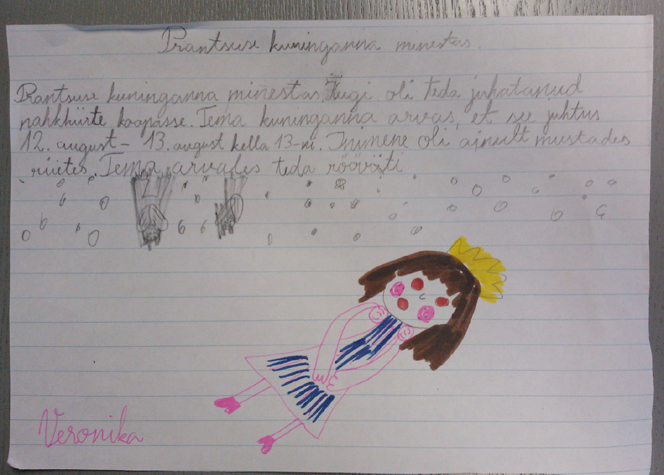 Prantsuse kuninganna minestas.
Prantsuse kuninganna minestas, Kugi oli teda juhatanud
nahkhiirte koopasse. Tema kuninganna arvas, et see juhtus
12. august – 13. august kella 13-ni. Inimene oli ainult mustades
riietes. Tema arvates teda rööviti
Veronika